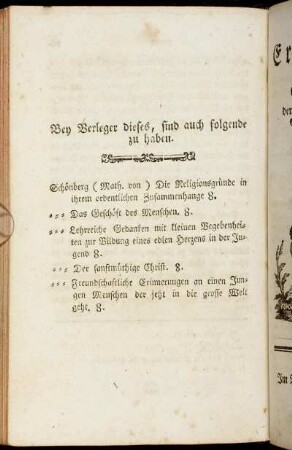 Bey Verleger dieses, sind auch folgende
zu haben.
Schönberg (Math. von) Die Religionsgründe in
ihrem ordentlichen Zusammenhange 8.
... Das Geschäft des Menschen. 8.
... Lehrreiche Gedanken mit kleinen Begebenhei-
ten zur Bildung eines edlen Herzens in der Ju-
gend 8.
... Der sanftmüthige Christ. 8.
... Freundschaftliche Erinnerungen an einen Jun-
gen Menschen der jetzt in die grosse Welt
geht. 8.